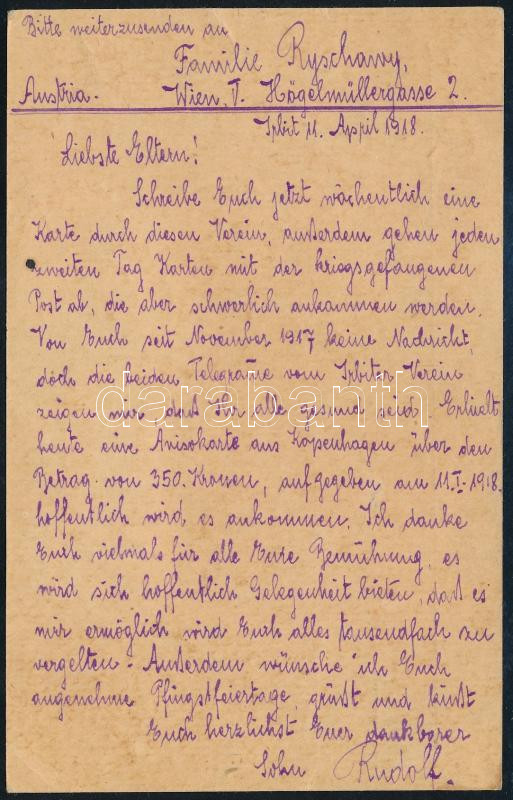 Bitte weiterzusenden an
Familie Ryschawy,
Austria. Wien, V. Högelmüllergasse 2.
Irbit 11. April 1918.
Liebste Eltern!
Schreibe Euch jetzt wöchentlich eine
Karte durch diesen Verein, außerdem gehen jeden
zweiten Tag Karten mit der kriegsgefangenen
Post ab, die aber schwerlich ankommen werden.
Von Euch seit November 1917 keine Nachricht,
doch die beiden Telegrame vom Irbiter Verein
zeigen mir, daß Ihr alle gesund seid. Erhielt
heute eine Avisokarte aus Kopenhagen über den
Betrag von 350. Kronen, aufgegeben am 11.I.1918.
hoffentlich wird es ankommen. Ich danke
Euch vielmals für alle Eure Bemühung, es
wird sich hoffentlich Gelegenheit bieten, daß es
mir ermöglich wird Euch alles tausendfach zu
vergelten. Außerdem wünsche ich Euch
angenehme Pfingstfeiertage, grüßt und küßt
Euch herzlichst Euer dankbarer
Sohn Rudolf.
darabanth